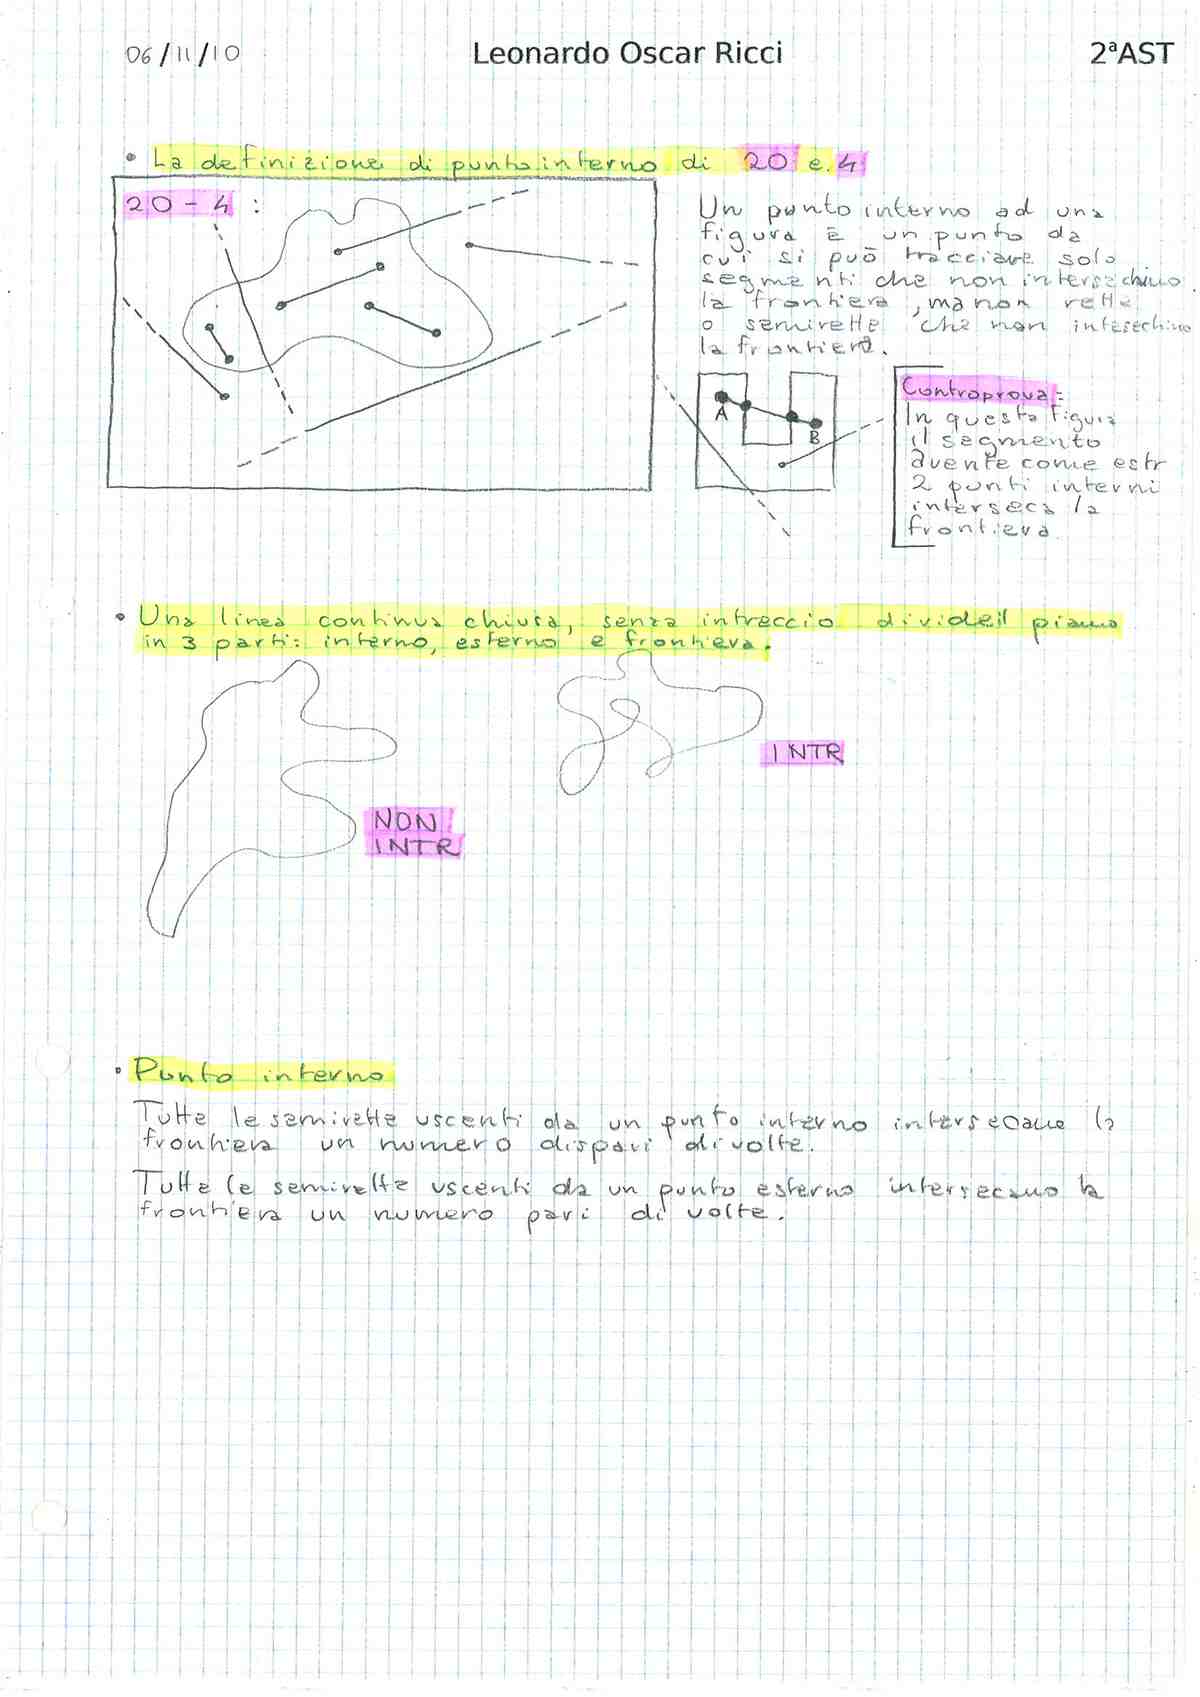 06/11/10 Leonardo Oscar Ricci 2ªAST
• La definizione di punto interno di 20 e 4
20-4:
Un punto interno ad una
figura è un punto da
cui si può tracciare solo
segmenti che non intersechino
la frontiera, ma non rette
o semirette che non intesechino
la frontiera.
A
B
Controprova:
In questa figura
il segmento
avente come estr
2 punti interni
interseca la
frontiera
• Una linea continua chiusa, senza intreccio divide il piano
in 3 parti: interno, esterno e frontiera.
INTR
NON
INTR
• Punto interno
Tutte le semirette uscenti da un punto interno intersecano la
frontiera un numero dispari di volte.
Tutte le semirette uscenti da un punto esterno intersecano la
frontiera un numero pari di volte.